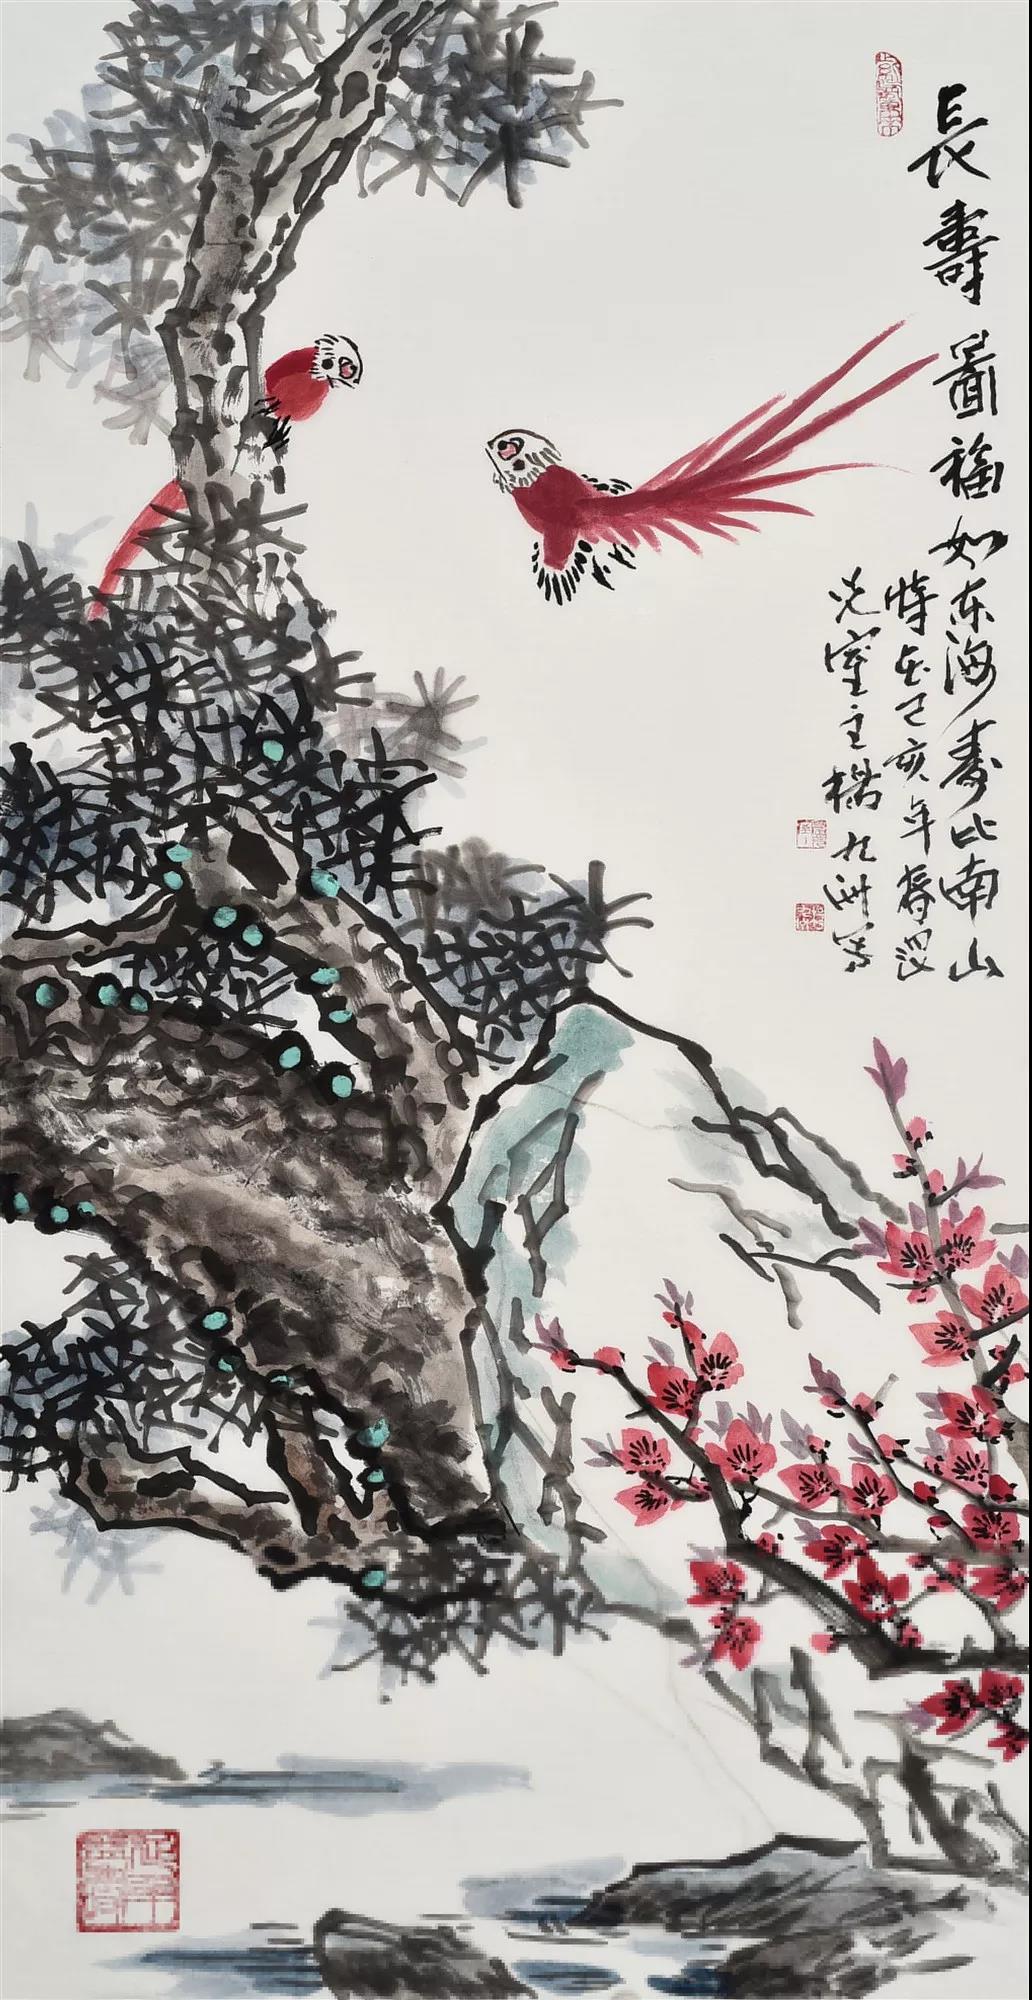 長壽圖福如东海寿比南山
時在己亥年春
室主楊九洲写